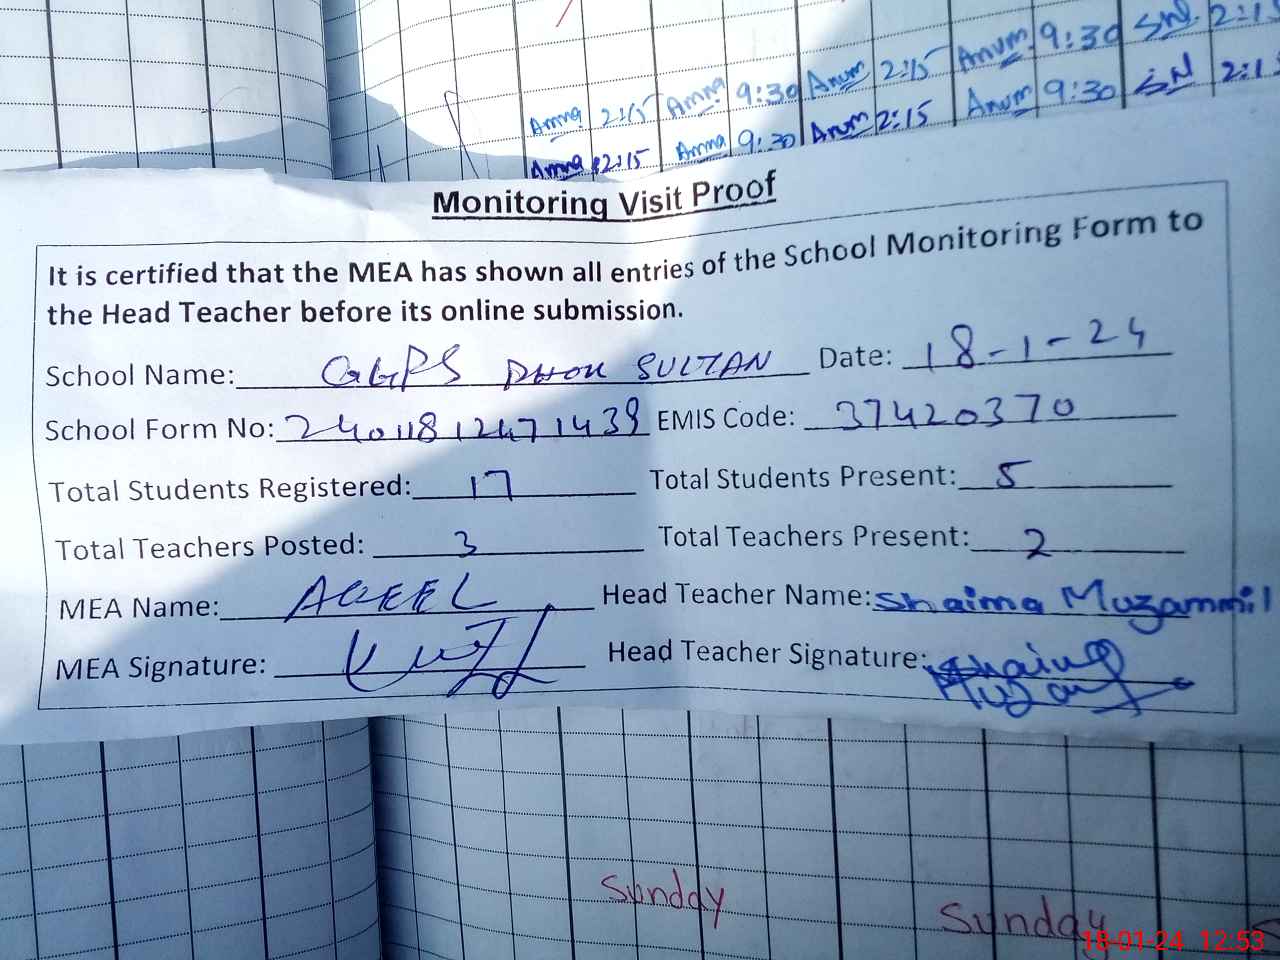 Amna 2:15 Amna 9:30 Anum 2:15 Anum 9:30 SN 2:15
Amna 2:15 Amna 9:30 Anum 2:15 Anum 9:30 SN 2:1
Monitoring Visit Proof
It is certified that the MEA has shown all entries of the School Monitoring Form to
the Head Teacher before its online submission.
School Name: GGPS DHOK SULTAN Date: 18-1-24
School Form No: 24011812471439 EMIS Code: 37420370
Total Students Registered: 17 Total Students Present: 5
Total Teachers Posted: 3 Total Teachers Present: 2
MEA Name: AQEEL Head Teacher Name: Shaima Muzammil
MEA Signature: Head Teacher Signature: Shaima
Sunday Sunday
18-01-24 12:53